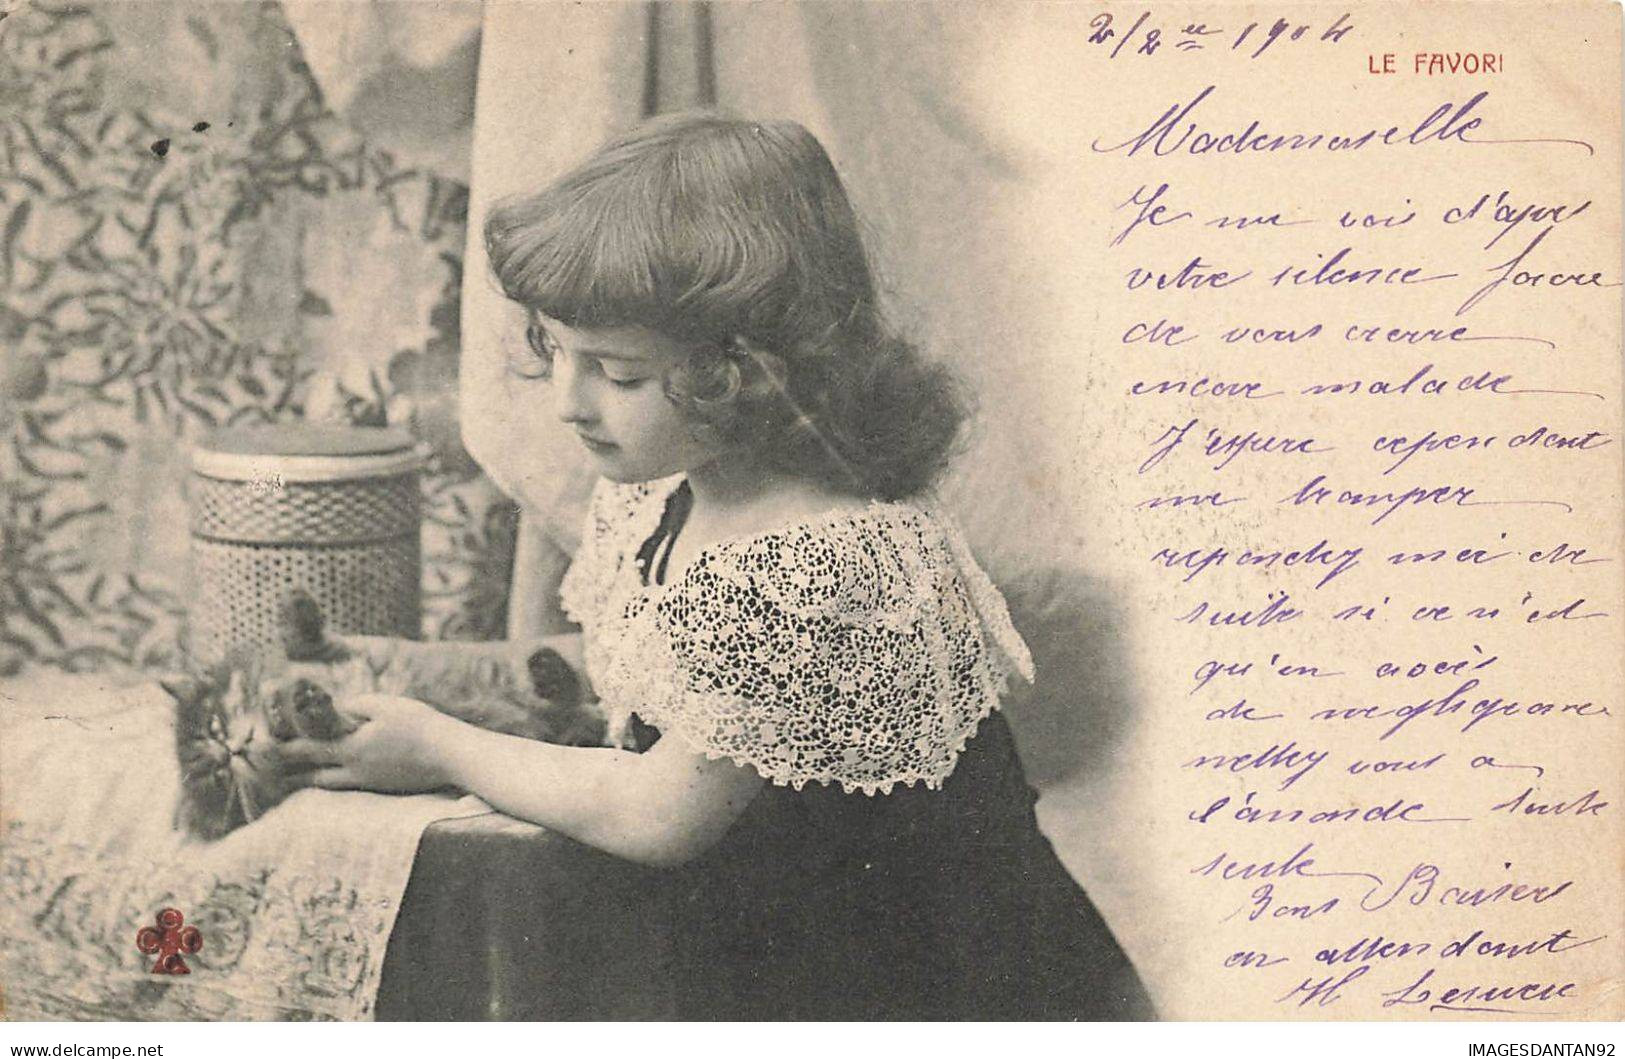 2/2 1904
LE FAVORI
Mademoiselle
Je me vois d'apres
votre silence forcee
de vous croire
encore malade
J'espere cependant
me tromper
repondez moi de
suite si ce n'est
qu'un accès
de negligeance
mettez vous a
l'amande suite
suite
Bons Baisers
en attendant
H Lesueur
IMAGESDANTAN92